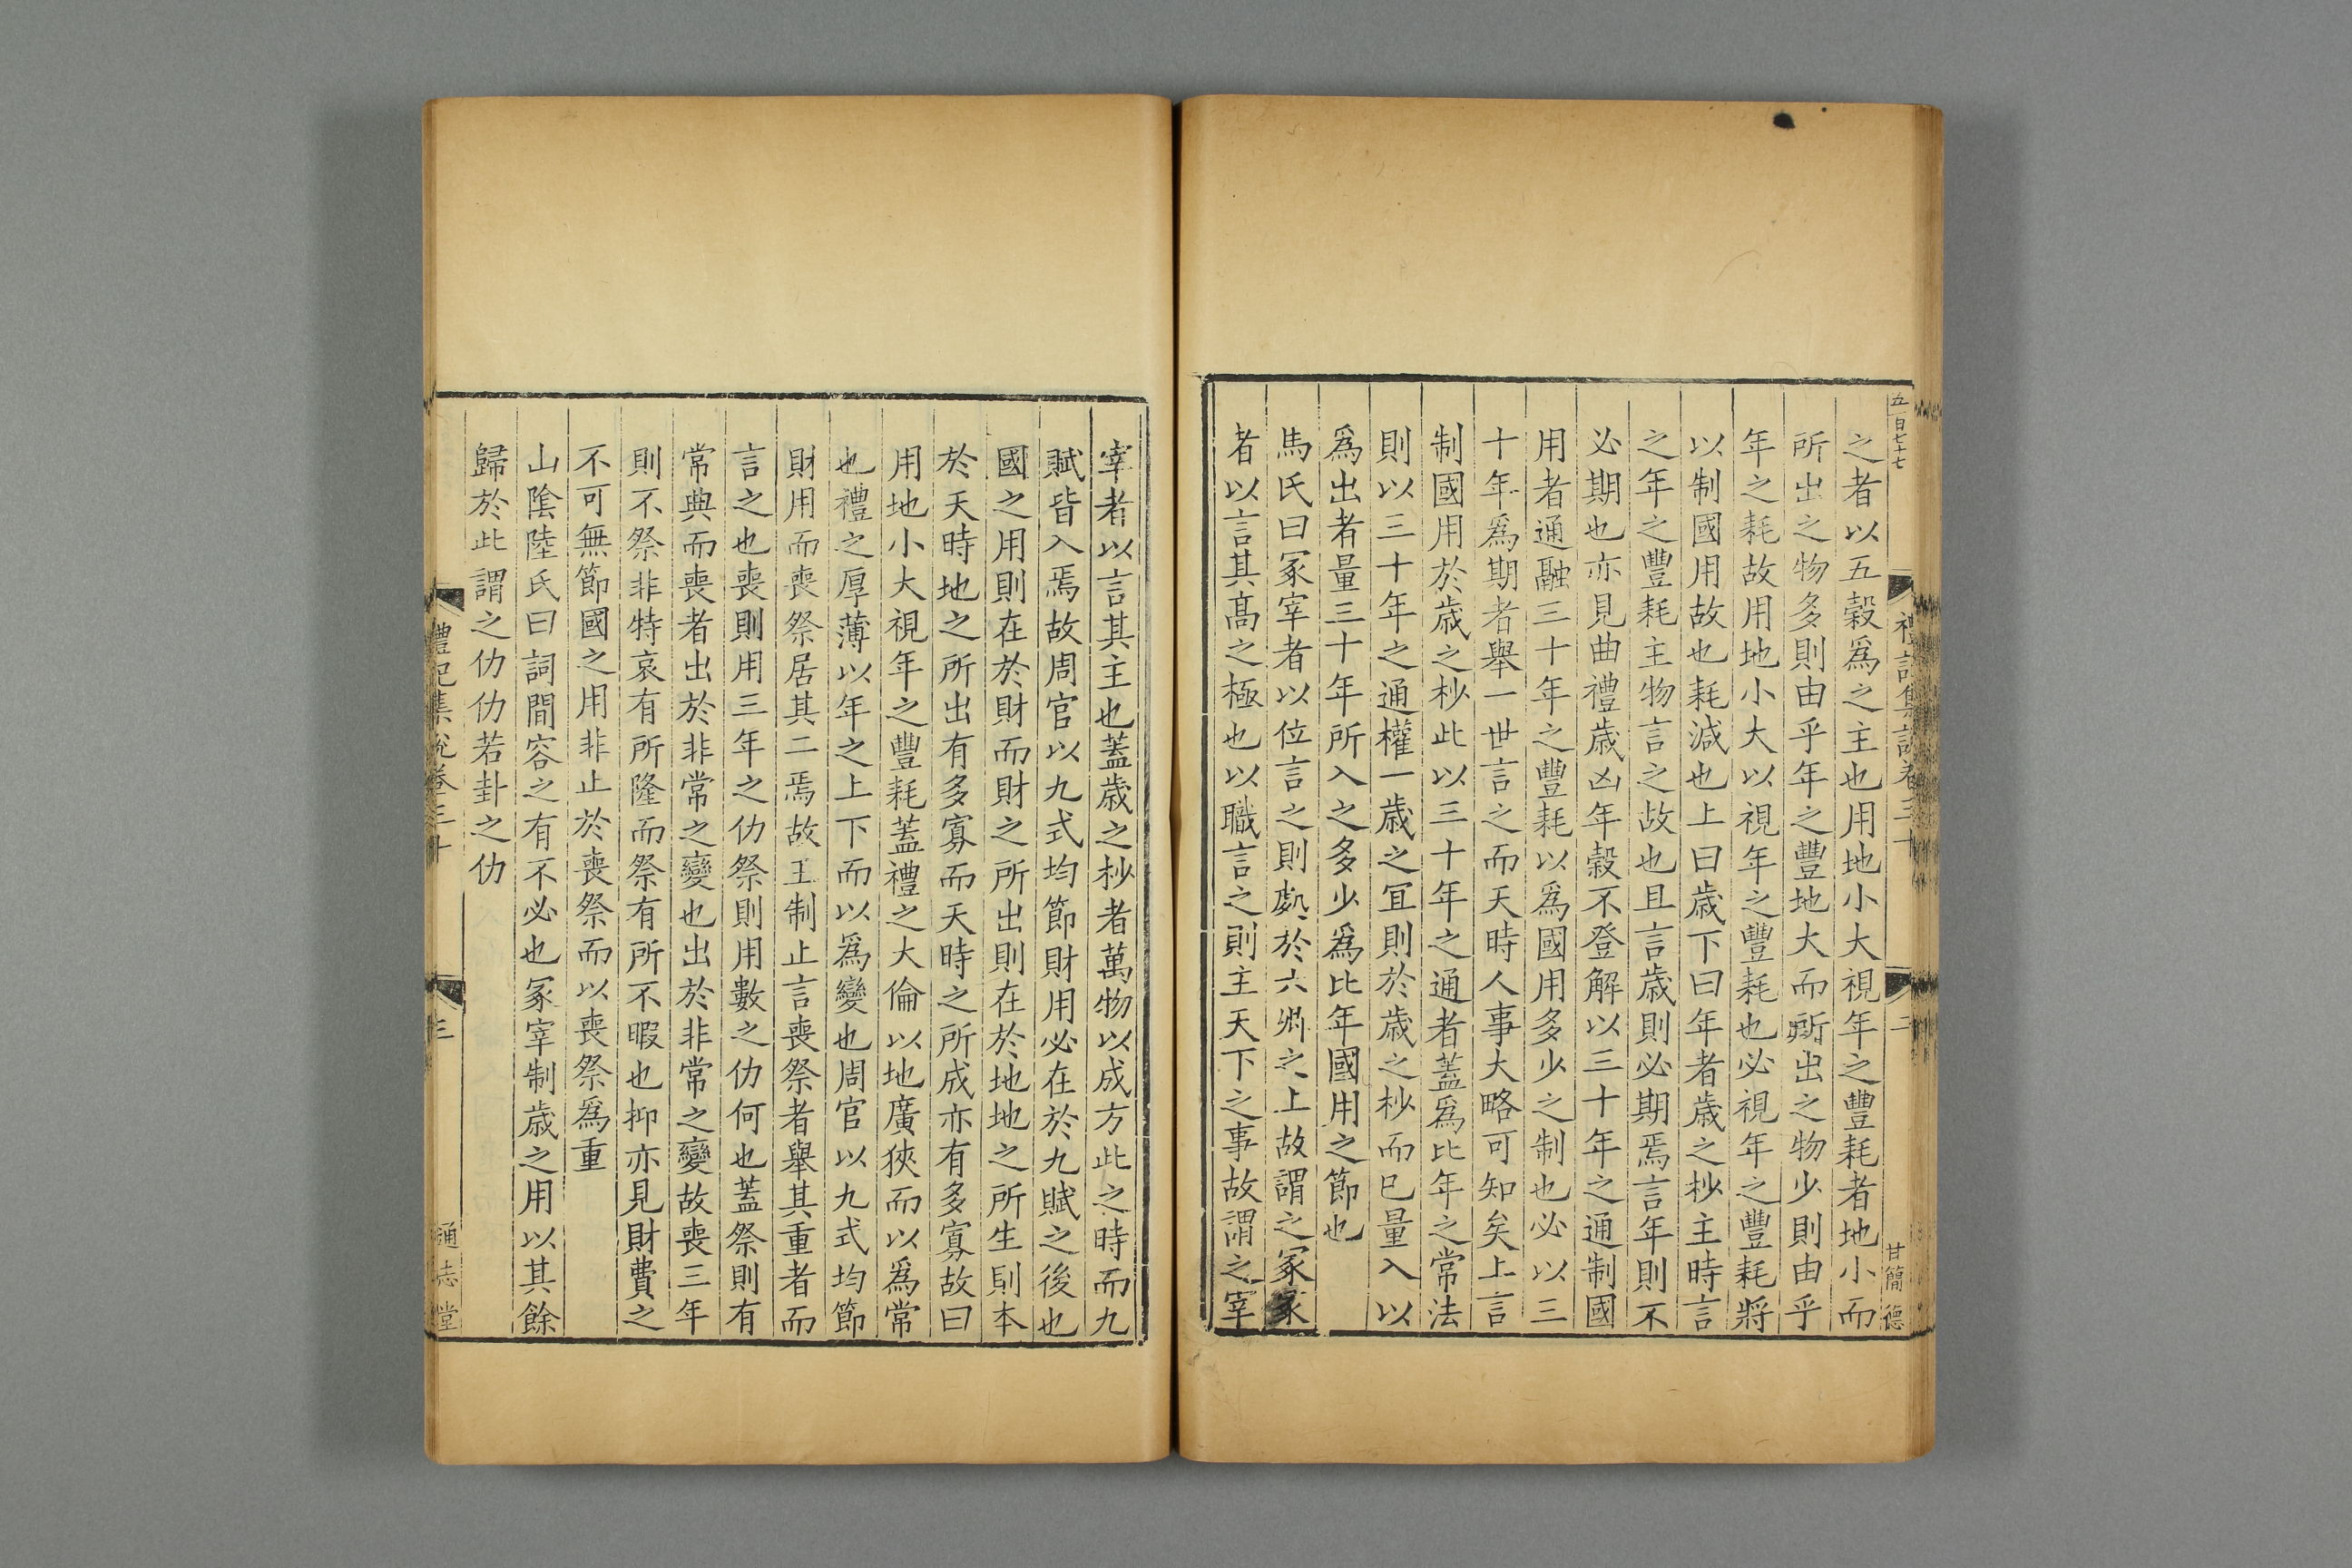 五百七十七
禮記集說卷三十
二
甘簡德
之者以五穀爲之主也用地小大視年之豐耗者地小而
所出之物多則由乎年之豐地大而所出之物少則由乎
年之耗故用地小大以視年之豐耗也必視年之豐耗將
以制國用故也耗減也上曰歲下曰年者歲之杪主時言
之年之豐耗主物言之故也且言歲則必期焉言年則不
必期也亦見曲禮歲凶年穀不登解以三十年之通制國
用者通融三十年之豐耗以爲國用多少之制也必以三
十年爲期者舉一世言之而天時人事大略可知矣上言
制國用於歲之杪此以三十年之通者蓋爲比年之常法
則以三十年之通權一歲之宜則於歲之杪而巳量入以
爲出者量三十年所入之多少爲比年國用之節也
馬氏曰冢宰者以位言之則處於六卿之上故謂之冢冢
者以言其髙之極也以職言之則主天下之事故謂之宰
宰者以言其主也蓋歲之杪者萬物以成方此之時而九
賦皆入焉故周官以九式均節財用必在於九賦之後也
國之用則在於財而財之所出則在於地地之所生則本
於天時地之所出有多寡而天時之所成亦有多寡故曰
用地小大視年之豐耗蓋禮之大倫以地廣狹而以爲常
也禮之厚薄以年之上下而以爲變也周官以九式均節
財用而喪祭居其二焉故王制止言喪祭者舉其重者而
言之也喪則用三年之仂祭則用數之仂何也蓋祭則有
常典而喪者出於非常之變也出於非常之變故喪三年
則不祭非特哀有所隆而祭有所不暇也抑亦見財費之
不可無節國之用非止於喪祭而以喪祭爲重
山陰陸氏曰詞間容之有不必也冢宰制歲之用以其餘
歸於此謂之仂仂若卦之仂
禮記集說卷三十
三
通志堂